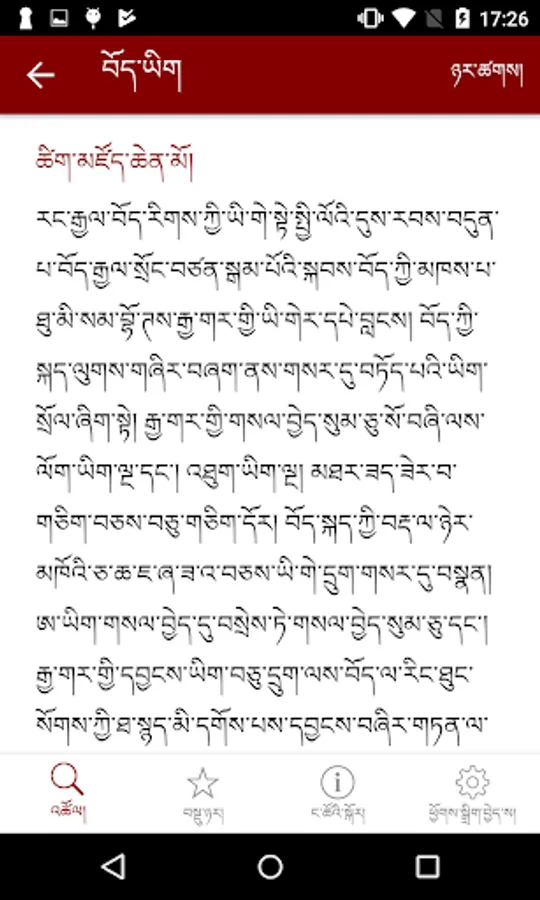 17:26
བོད་ཡིག
ཉར་ཚགས།
ཚིག་མཛོད་ཆེན་མོ།
རང་རྒྱལ་བོད་རིགས་ཀྱི་ཡི་གེ་སྟེ་སྤྱི་ལོའི་དུས་རབས་བདུན་
པ་བོད་རྒྱལ་སྲོང་བཙན་སྒམ་པོའི་སྐབས་བོད་ཀྱི་མཁས་པ་
ཐུ་མི་སམ་བྷོ་ཊས་རྒྱ་གར་གྱི་ཡི་གེར་དཔེ་བླངས། བོད་ཀྱི་
སྐད་ལུགས་གཞིར་བཞག་ནས་གསར་དུ་བཏོད་པའི་ཡིག་
སྲོལ་ཞིག་སྟེ། རྒྱ་གར་གྱི་གསལ་བྱེད་སུམ་ཅུ་སོ་བཞི་ལས་
ལོག་ཡིག་ལྔ་དང་། འཐུག་ཡིག་ལྔ། མཐར་ཟད་ཟེར་བ་
གཅིག་བཅས་བཅུ་གཅིག་དོར། བོད་སྐད་ཀྱི་བརྡ་ལ་ཉེར་
མཁོའི་ཅ་ཆ་ཇ་ཞ་ཟ་འ་བཅས་ཡི་གེ་དྲུག་གསར་དུ་བསྣན།
ཨ་ཡིག་གསལ་བྱེད་དུ་བསྲེས་ཏེ་གསལ་བྱེད་སུམ་ཅུ་དང་།
རྒྱ་གར་གྱི་དབྱངས་ཡིག་བཅུ་དྲུག་ལས་བོད་ལ་རིང་ཐུང་
སོགས་ཀྱི་ཐ་སྙད་མི་དགོས་པས་དབྱངས་བཞིར་གཏན་ལ་
འཚོལ།
བསྡུ་ཉར།
ང་ཚོའི་སྐོར།
ཕྱོགས་སྒྲིག་བྱེད་ས།